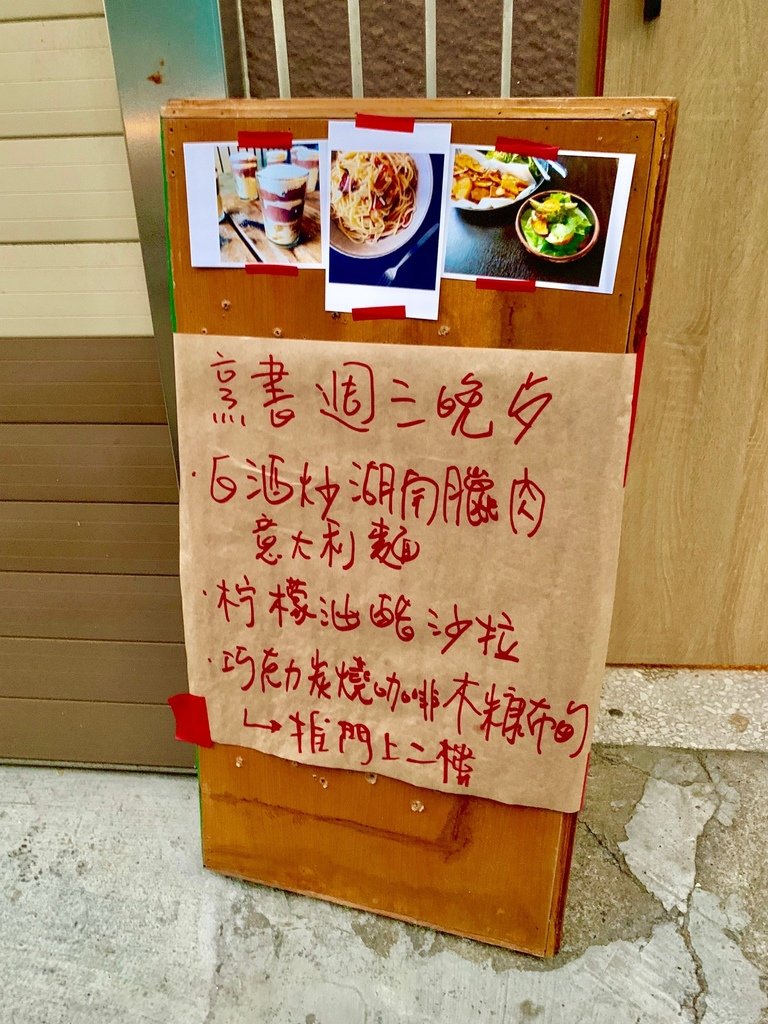 烹書週三晚夕
·白酒炒湖南臘肉
意大利麵
·柠檬油醋沙拉
·巧克力炭燒咖啡木糠布甸
↳推門上二樓